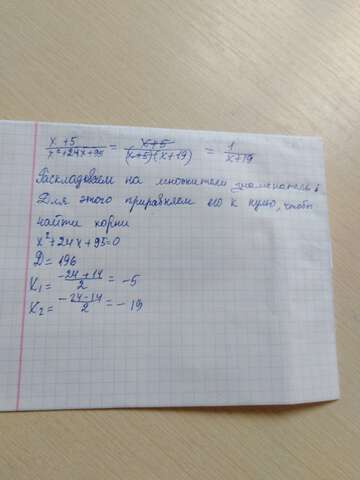 x+5 / x²+24x+95 = x+5 / (x+5)(x+19) = 1 / x+19
Раскладоваем на множители знаменатель.
Для этого приравняем его к нулю, чтобы
найти корни
x²+24x+95=0
D=196
x₁= -24+14 / 2 = -5
x₂= -24-14 / 2 = -19